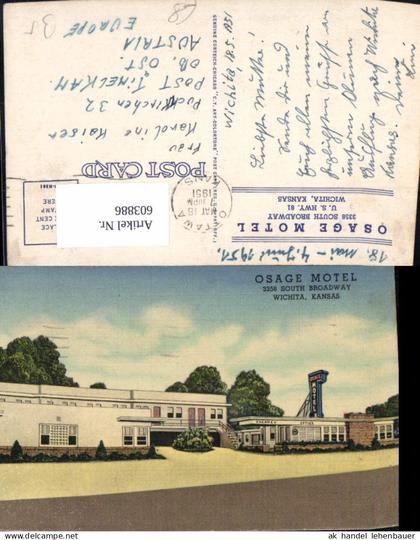 35
Frau
Karoline Kaiser
Puchkirchen 32
POST TIMELKAM
OB. OST.
AUSTRIA
EUROPE
POST CARD
GENUINE CURTEICH-CHICAGO "C.T. ART-COLORTONE" POST CARD
PLACE
ONE CENT
STAMP
HERE
Artikel Nr.
603886
OTTAWA
MAY 18
PM
1951
KANS.
Wichita 18.5.1951
Liebste Mutter!
Sende dir und
Euch allen meine
von
unserem
Ausflug nach Wichita
Kansas
OSAGE MOTEL
3358 SOUTH BROADWAY
U. S. HWY. 81
WICHITA, KANSAS
18. Mai - 4. Juni 1951.
OSAGE MOTEL
3358 SOUTH BROADWAY
WICHITA, KANSAS
OSAGE
MOTEL
OFFICE
ak handel lehenbauer